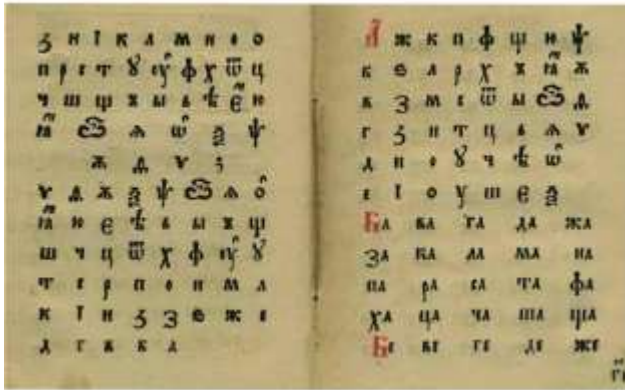 з и ї к л м н о о
п р с т ꙋ ѹ ф х ѿ ц
ч ш щ ъ ы ь ѣ є ю
ꙗ ѧ ѡ ѯ ѱ
ѫ ѵ з
ѵ ѫ ѯ ѱ ѧ ѡ
ꙗ ю є ѣ ь ы ъ щ
ш ч ц ѿ х ф ѹ ꙋ
т с р п о н м л
к ї и з з ѕ ж е
д г в б а
А ж к п ф щ ю ѱ
б ѕ л р х ъ ꙗ ѫ
в з м с ѿ ы
г з н т ц ь ѧ ѵ
д и о ꙋ ч ѣ ѡ
е ї о у ш є ѯ
Ба ва га да жа
За ка ла ма на
па ра са та фа
ха ца ча ша ща
Бе ве ге де же